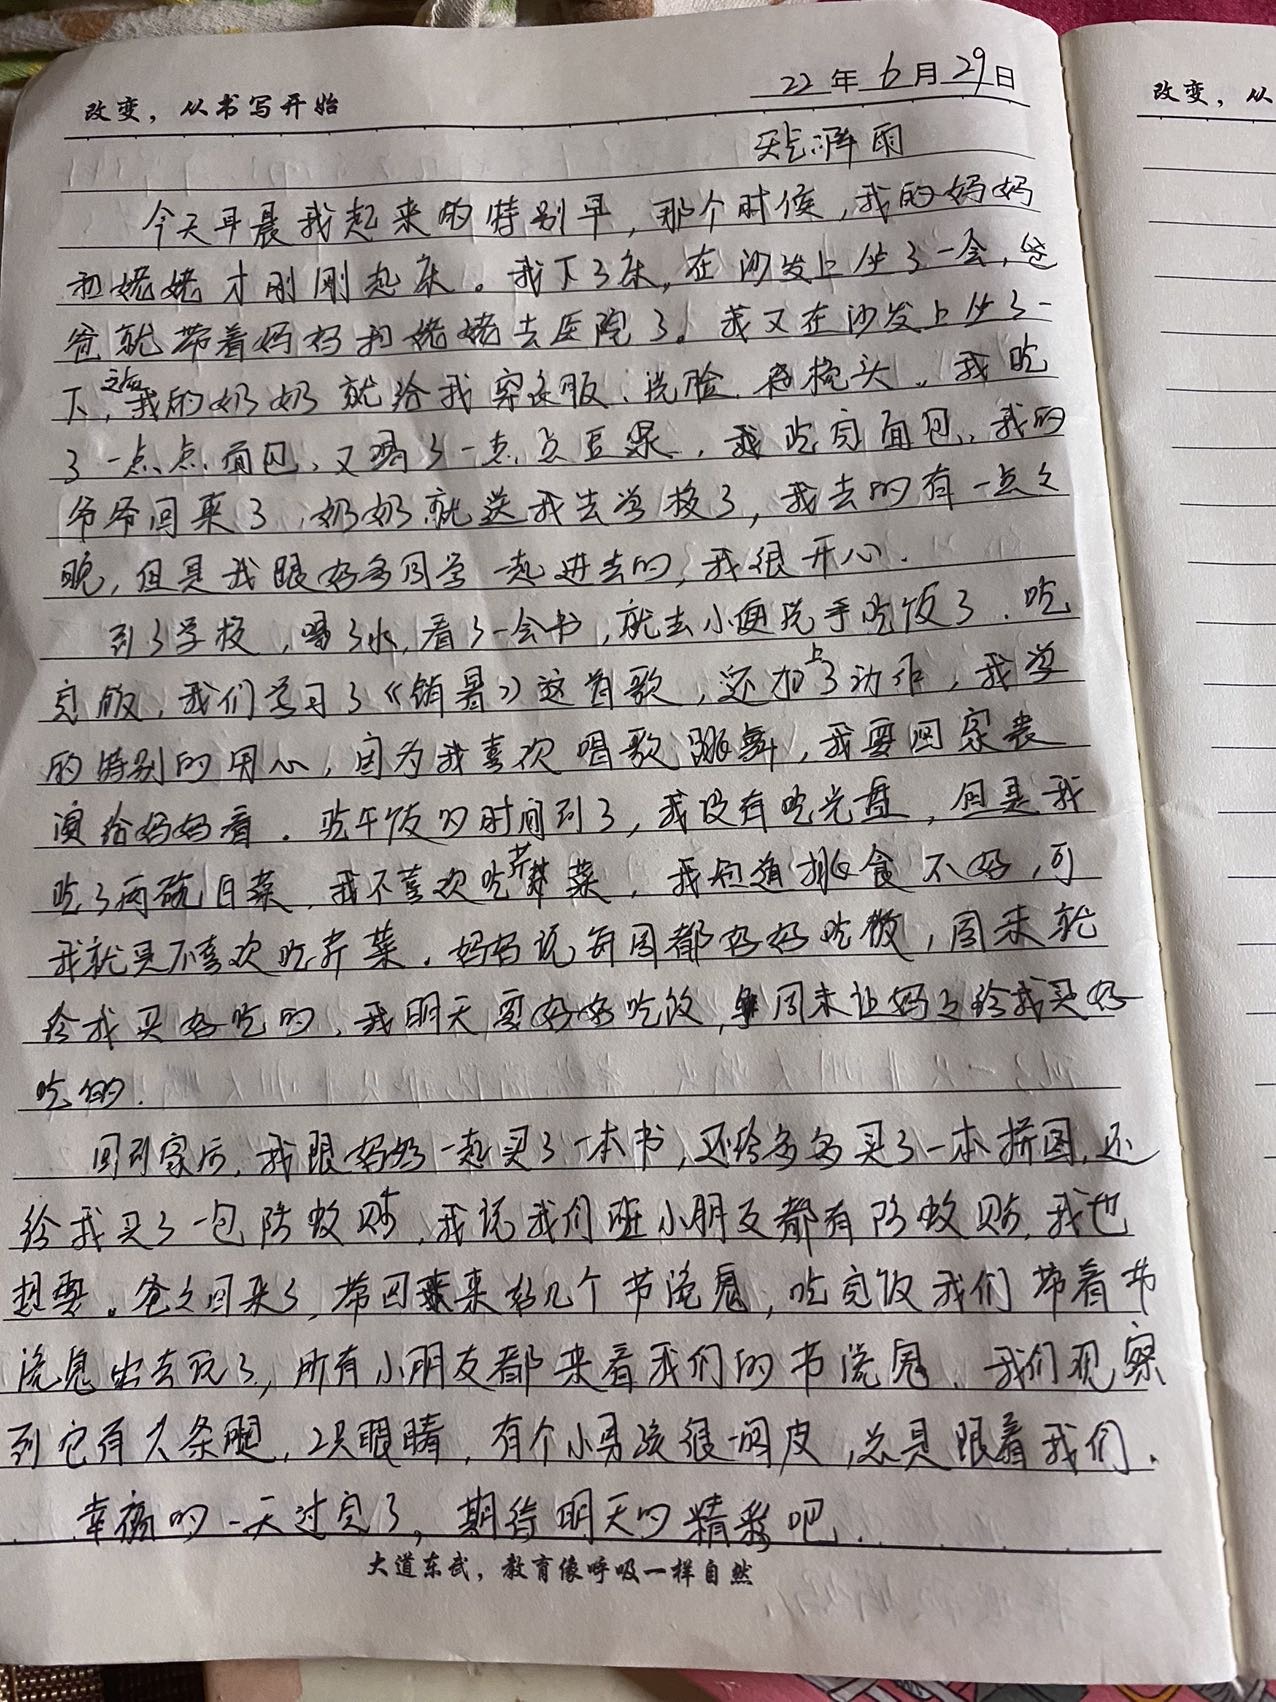 改变，从书写开始
22年6月29日
天气 阵雨
今天早晨我起来的特别早，那个时候，我的妈妈
和姥姥才刚刚起床。我下了床，在沙发上坐了一会，爸
爸就带着妈妈和姥姥去医院了。我又在沙发上坐了一
下，之后我的奶奶就给我穿衣服、洗脸、梳头。我吃
了一点点面包，又喝了一点点豆浆，我吃完面包，我的
爷爷回来了，奶奶就送我去学校了，我去的有一点点
晚，但是我跟好多同学一起进去的，我很开心.
到了学校，喝了水，看了一会书，就去小便洗手吃饭了.吃
完饭，我们学习了《销暑》这首歌，还加上了动作，我学
的特别的用心，因为我喜欢唱歌跳舞，我要回家表
演给妈妈看.吃午饭的时间到了，我没有吃光盘，但是我
吃了两碗白菜，我不喜欢吃芹菜，我知道挑食不好，可
我就是不喜欢吃芹菜.妈妈说每周都好好吃饭，周末就
给我买好吃的，我明天要好好吃饭，周末让妈妈给我买好
吃的.
回到家后，我跟妈妈一起买了一本书，还给多多买了一本拼图，还
给我买了一包防蚊贴，我说我们班小朋友都有防蚊贴，我也
想要。爸爸回来了，带回来好几个节流龟，吃完饭我们带着节
流龟出去玩了，所有小朋友都来看我们的节流龟，我们观察
到它有六条腿，2只眼睛，有个小男孩很调皮，总是跟着我们.
幸福的一天过完了，期待明天的精彩吧.
大道东武，教育像呼吸一样自然
改变，从